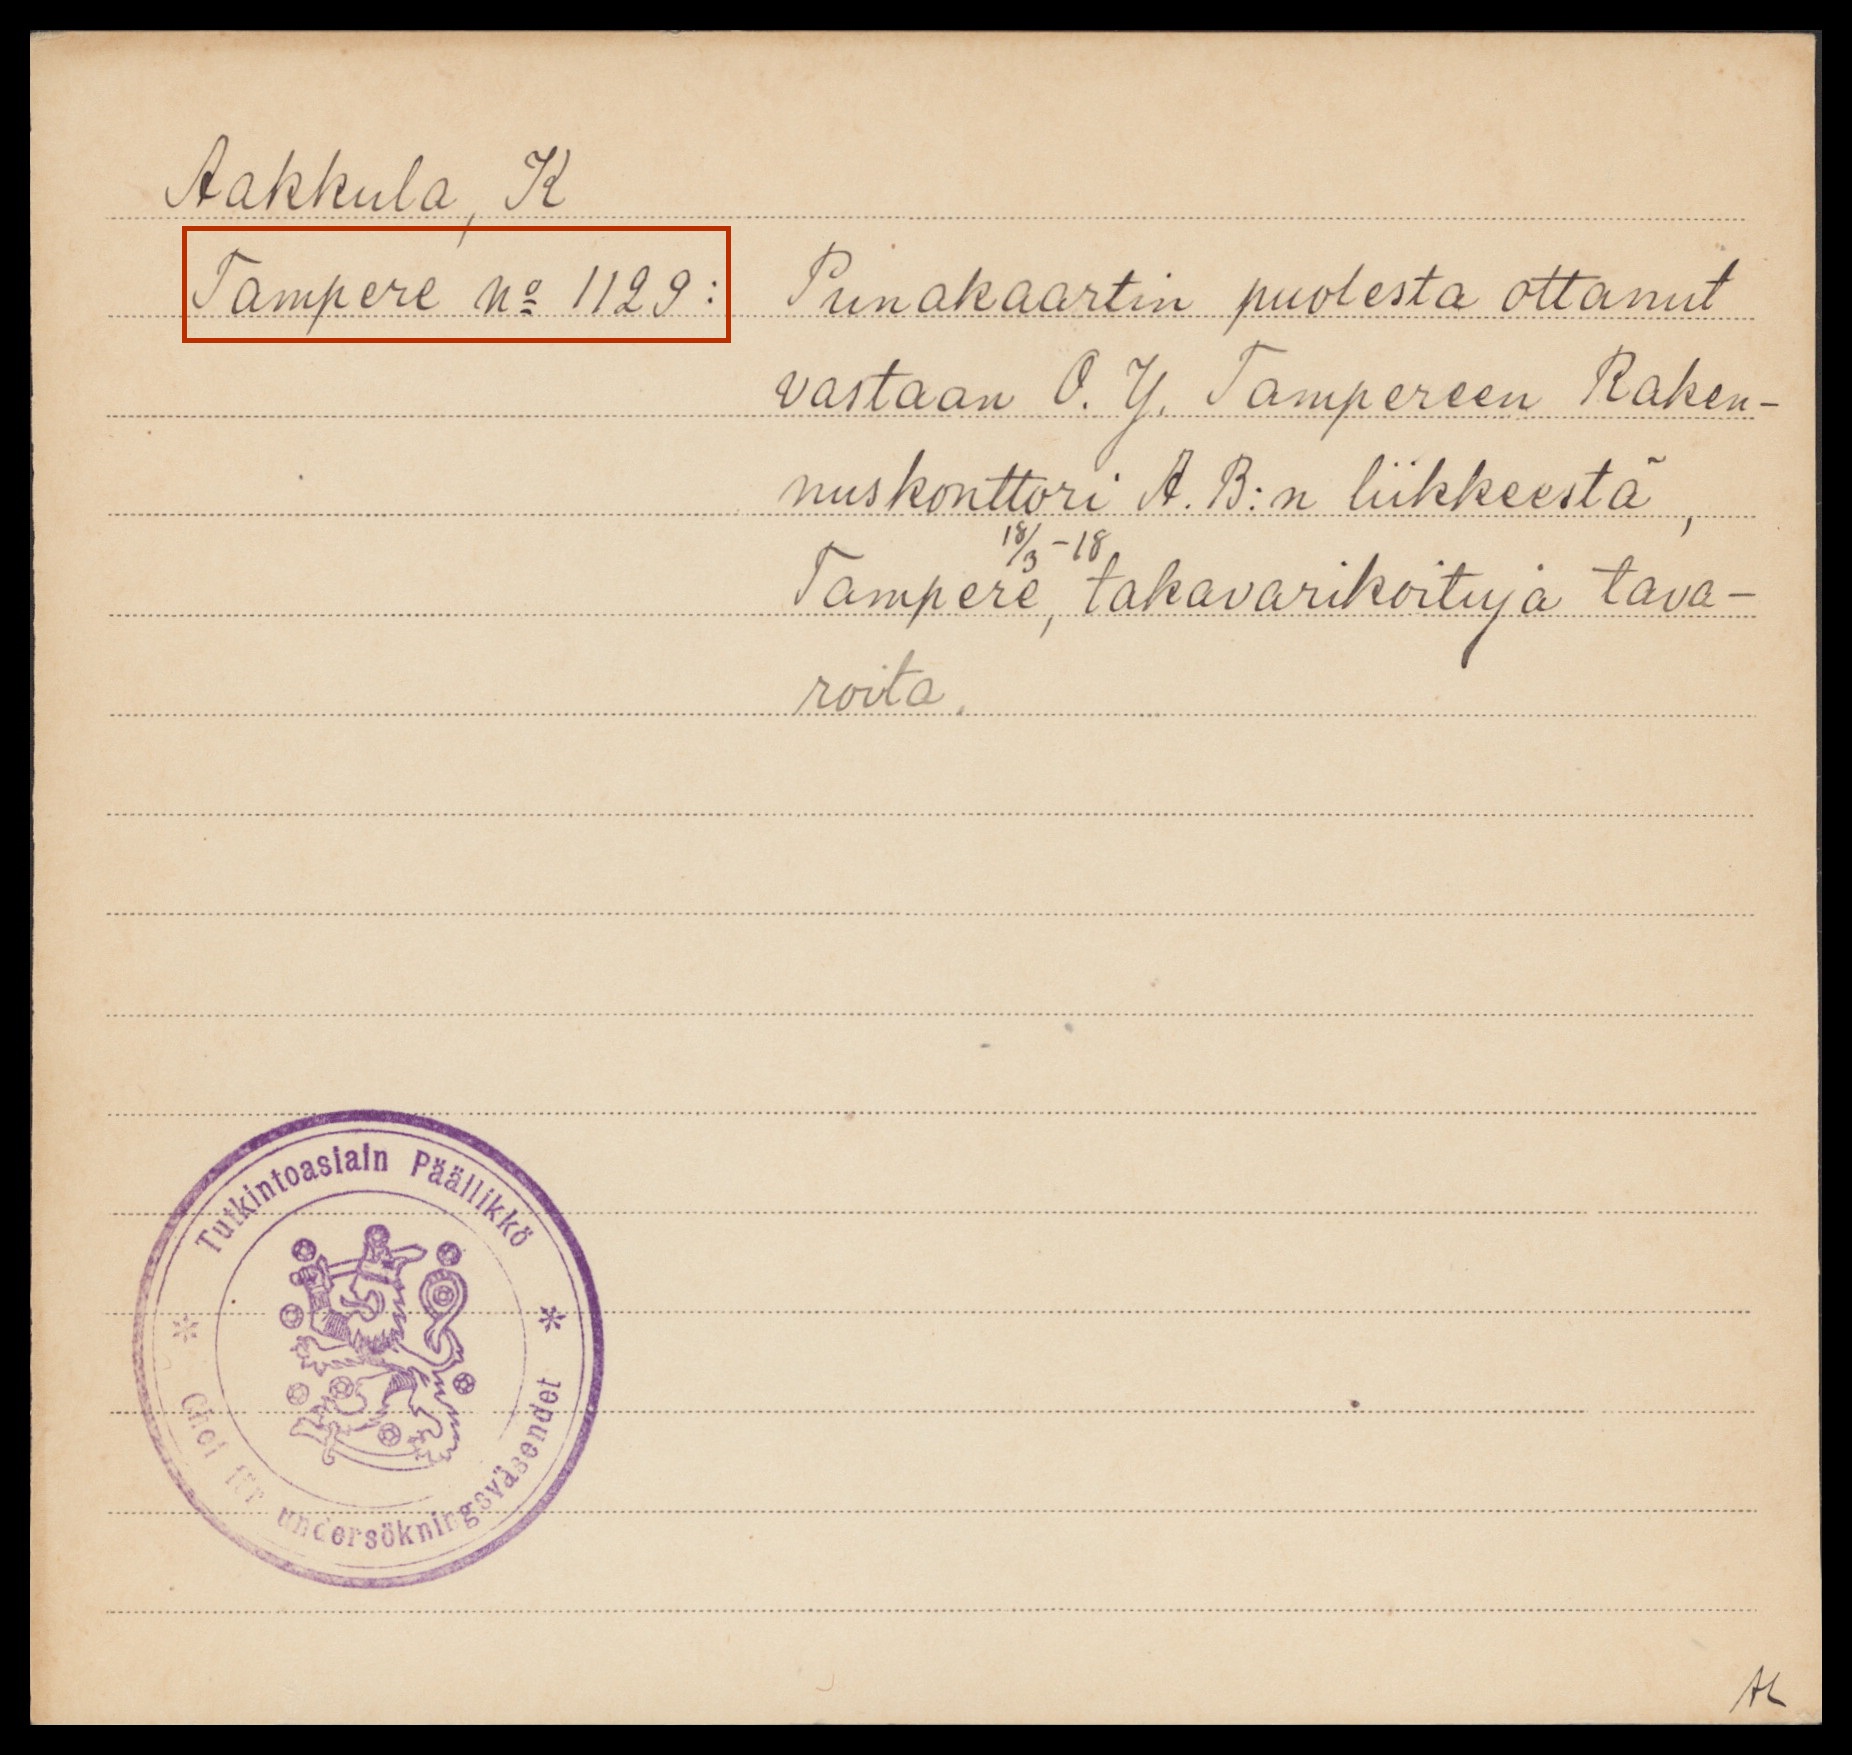 Aakkula, K
Tampere No 1129: Punakaartin puolesta ottanut
vastaan O. Y. Tampereen Raken-
nuskonttori A. B:n liikkeestä,
18/3 -18
Tampere, takavarikoituja tava-
roita.
Tutkintoasiain Päällikkö
Chef för undersökningsväsendet
AL